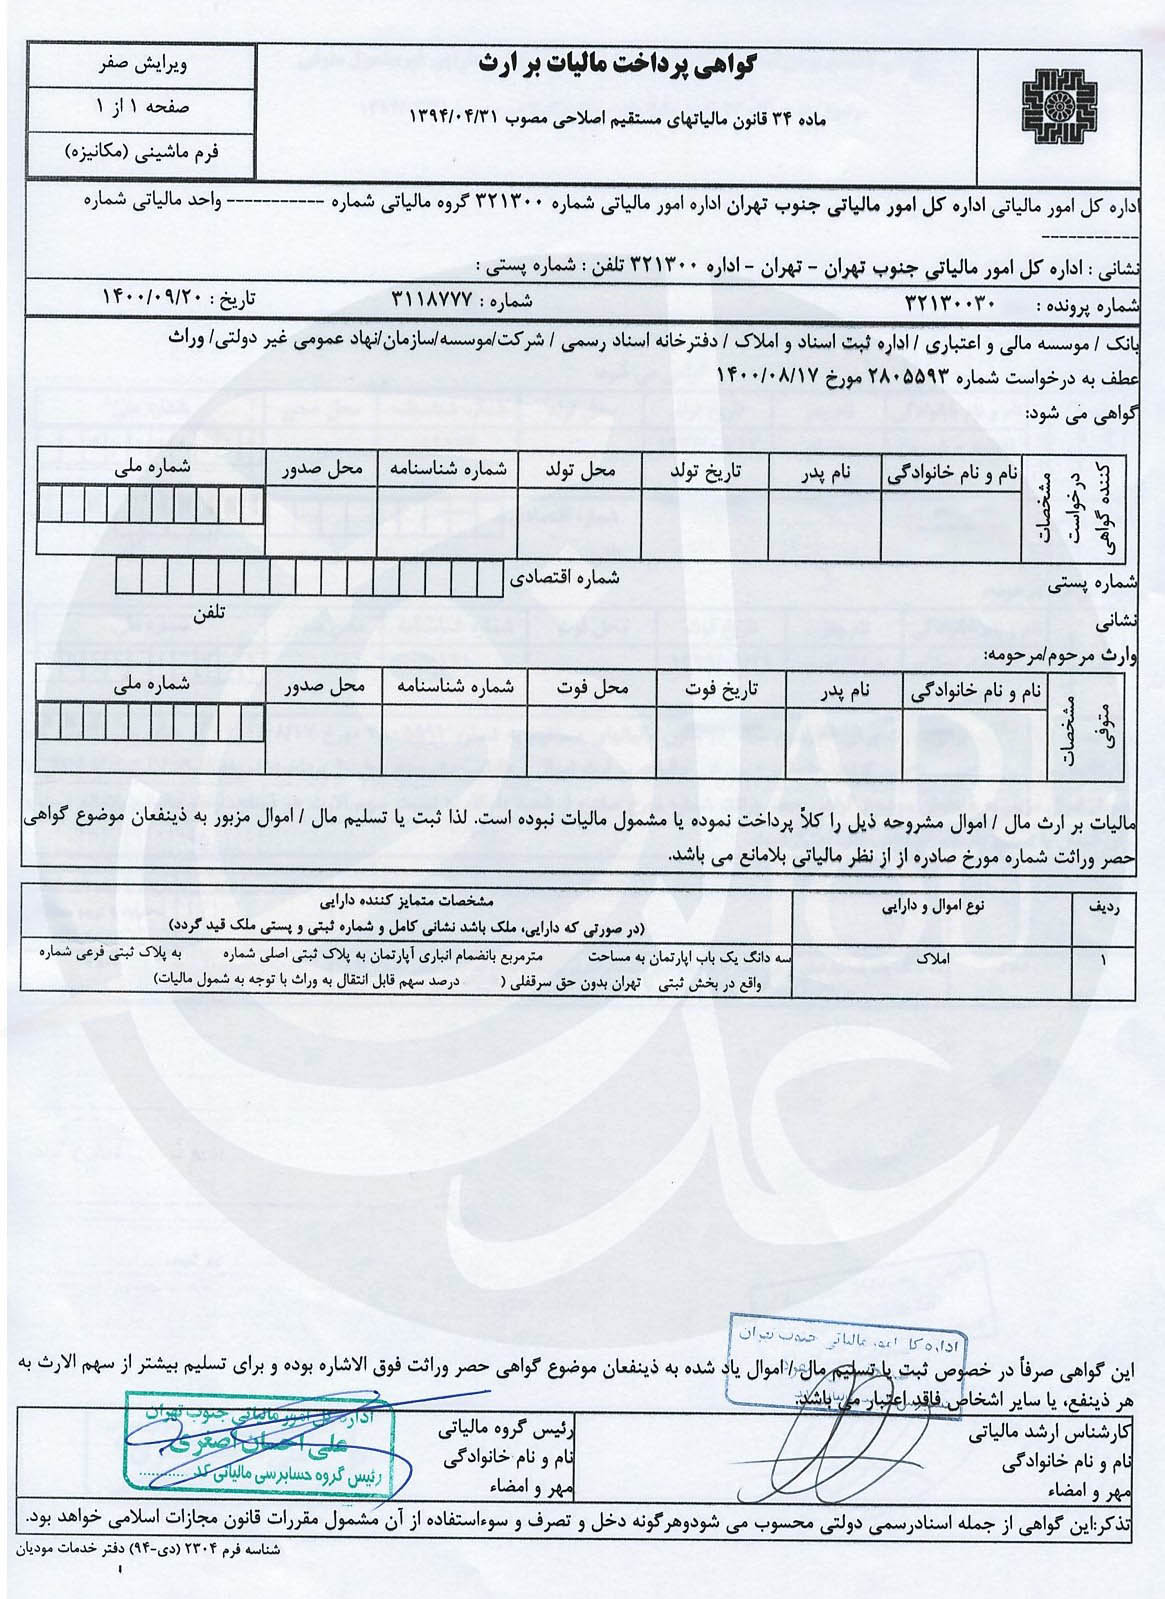 گواهی پرداخت مالیات بر ارث
ماده ۳۴ قانون مالیاتهای مستقیم اصلاحی مصوب ۱۳۹۴/۰۴/۳۱
ویرایش صفر
صفحه ۱ از ۱
فرم ماشینی (مکانیزه)
اداره کل امور مالیاتی اداره کل امور مالیاتی جنوب تهران اداره امور مالیاتی شماره ۳۲۱۳۰۰ گروه مالیاتی شماره ----------- واحد مالیاتی شماره
-----------
نشانی : اداره کل امور مالیاتی جنوب تهران - تهران - اداره ۳۲۱۳۰۰ تلفن : شماره پستی :
شماره پرونده : ۳۲۱۳۰۰۳۰ شماره : ۳۱۱۸۷۷۷ تاریخ : ۱۴۰۰/۰۹/۲۰
بانک / موسسه مالی و اعتباری / اداره ثبت اسناد و املاک / دفترخانه اسناد رسمی / شرکت/موسسه/سازمان/نهاد عمومی غیر دولتی/ وراث
عطف به درخواست شماره ۲۸۰۵۵۹۳ مورخ ۱۴۰۰/۰۸/۱۷
گواهی می شود:
مشخصات درخواست کننده گواهی
نام و نام خانوادگی نام پدر تاریخ تولد محل تولد شماره شناسنامه محل صدور شماره ملی
شماره پستی شماره اقتصادی
نشانی تلفن
وارث مرحوم/مرحومه:
مشخصات متوفی
نام و نام خانوادگی نام پدر تاریخ فوت محل فوت شماره شناسنامه محل صدور شماره ملی
مالیات بر ارث مال / اموال مشروحه ذیل را کلاً پرداخت نموده یا مشمول مالیات نبوده است. لذا ثبت یا تسلیم مال / اموال مزبور به ذینفعان موضوع گواهی
حصر وراثت شماره مورخ صادره از از نظر مالیاتی بلامانع می باشد.
ردیف نوع اموال و دارایی مشخصات متمایز کننده دارایی
(در صورتی که دارایی، ملک باشد نشانی کامل و شماره ثبتی و پستی ملک قید گردد)
۱ املاک سه دانگ یک باب اپارتمان به مساحت مترمربع بانضمام انباری آپارتمان به پلاک ثبتی اصلی شماره به پلاک ثبتی فرعی شماره
واقع در بخش ثبتی تهران بدون حق سرقفلی ( درصد سهم قابل انتقال به وراث با توجه به شمول مالیات)
اداره کل امور مالیاتی جنوب تهران
این گواهی صرفاً در خصوص ثبت یا تسلیم مال / اموال یاد شده به ذینفعان موضوع گواهی حصر وراثت فوق الاشاره بوده و برای تسلیم بیشتر از سهم الارث به
هر ذینفع، یا سایر اشخاص فاقد اعتبار می باشد.
کارشناس ارشد مالیاتی
نام و نام خانوادگی
مهر و امضاء
رئیس گروه مالیاتی
نام و نام خانوادگی
مهر و امضاء
اداره کل امور مالیاتی جنوب تهران
علی احسان اصغری
رئیس گروه حسابرسی مالیاتی کد ...........
تذکر:این گواهی از جمله اسنادرسمی دولتی محسوب می شودوهرگونه دخل و تصرف و سوءاستفاده از آن مشمول مقررات قانون مجازات اسلامی خواهد بود.
شناسه فرم ۲۳۰۴ (دی-۹۴) دفتر خدمات مودیان